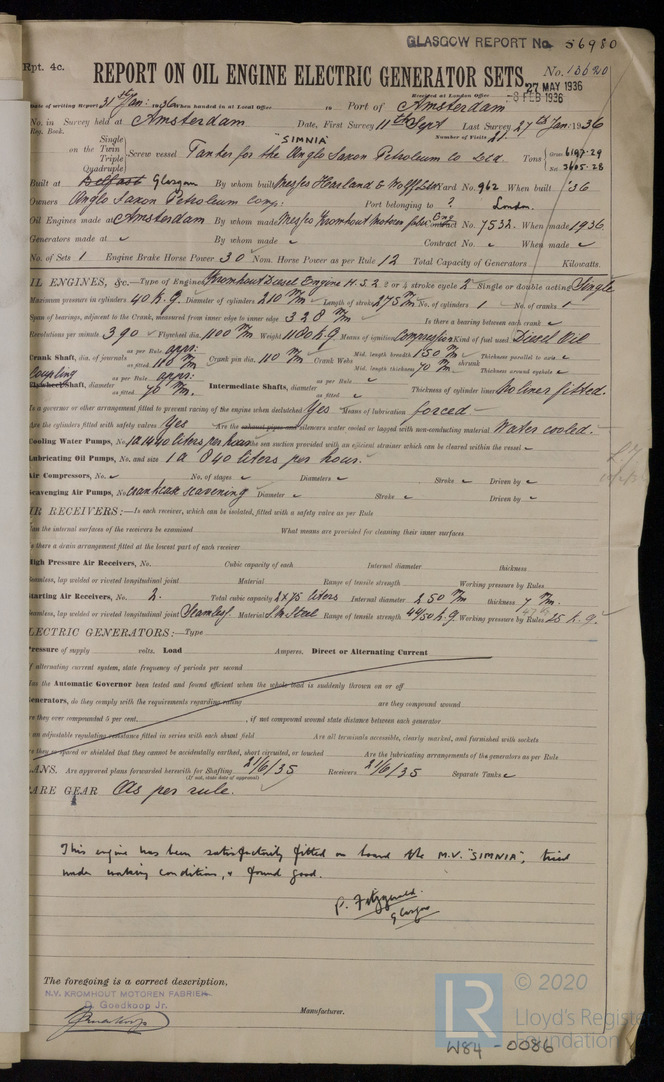 GLASGOW REPORT No. 56980
Rpt. 4c.
REPORT ON OIL ENGINE ELECTRIC GENERATOR SETS. No.
27 MAY 1936
Received at London Office -8 FEB 1936
Date of writing Report 31st Jan: 1936 When handed in at Local Office Port of Amsterdam
No. in Survey held at Amsterdam Date, First Survey 11th Sept Last Survey 27th Jan: 1936
Reg. Book. Number of Visits 21.
"SIMNIA"
Single
on the Twin Triple Quadruple Screw vessel Tanker for the Anglo Saxon Petroleum Co Ltd. Tons Gross 6197.29
Net 3605.28
Built at Belfast Glasgow By whom built Messrs Harland & Wolff Ltd Yard No. 962 When built '36
Owners Anglo Saxon Petroleum Comp: Port belonging to ? London.
Oil Engines made at Amsterdam By whom made Messrs Kromhout Motoren fabr. Eng Contract No. 7532. When made 1936.
Generators made at By whom made Contract No. When made
No. of Sets 1 Engine Brake Horse Power 30 Nom. Horse Power as per Rule 12 Total Capacity of Generators Kilowatts.
OIL ENGINES, &c.—Type of Engines Kromhout Diesel Engine H.S.2. 2 or 4 stroke cycle 2 Single or double acting Single
Maximum pressure in cylinders 40 k.g. Diameter of cylinders 210 m/m Length of stroke 275 m/m No. of cylinders 1 No. of cranks 1
Span of bearings, adjacent to the Crank, measured from inner edge to inner edge 328 m/m Is there a bearing between each crank
Revolutions per minute 390 Flywheel dia. 1100 m/m Weight 1180 k.g. Means of ignition Compression Kind of fuel used Diesel Oil
Crank Shaft, dia. of journals as per Rule appr: as fitted 110 m/m Crank pin dia. 110 m/m Crank Webs Mid. length breadth 150 m/m Thickness parallel to axis
Mid. length thickness 70 m/m shrunk Thickness around eyehole
Coupling
Flywheel Shaft, diameter as per Rule appr: as fitted 70 m/m. Intermediate Shafts, diameter as per Rule as fitted Thickness of cylinder liners No liner fitted.
Is a governor or other arrangement fitted to prevent racing of the engine when declutched Yes Means of lubrication forced
Are the cylinders fitted with safety valves Yes Are the exhaust pipes and silencers water cooled or lagged with non-conducting material Water cooled.
Cooling Water Pumps, No. 1 a 1440 liters per hour Is the sea suction provided with an efficient strainer which can be cleared within the vessel
Lubricating Oil Pumps, No. and size 1 a 840 liters per hour.
Air Compressors, No. No. of stages Diameters Stroke Driven by
Scavenging Air Pumps, No. crankcase scavening Diameter Stroke Driven by
AIR RECEIVERS:—Is each receiver, which can be isolated, fitted with a safety valve as per Rule
Can the internal surfaces of the receivers be examined What means are provided for cleaning their inner surfaces
Is there a drain arrangement fitted at the lowest part of each receiver
High Pressure Air Receivers, No. Cubic capacity of each Internal diameter thickness
Seamless, lap welded or riveted longitudinal joint Material Range of tensile strength Working pressure by Rules
Starting Air Receivers, No. 2. Total cubic capacity 2x75 liters Internal diameter 250 m/m thickness 7 m/m.
Seamless, lap welded or riveted longitudinal joint Seamless. Material S.M. Steel Range of tensile strength 44/50 k.g. Working pressure by Rules 25 k.g.
ELECTRIC GENERATORS:—Type
Pressure of supply volts. Load Amperes. Direct or Alternating Current
If alternating current system, state frequency of periods per second
Has the Automatic Governor been tested and found efficient when the whole load is suddenly thrown on or off
Generators, do they comply with the requirements regarding rating are they compound wound
are they over compounded 5 per cent. , if not compound wound state distance between each generator
is an adjustable regulating resistance fitted in series with each shunt field Are all terminals accessible, clearly marked, and furnished with sockets
are they so spaced or shielded that they cannot be accidentally earthed, short circuited, or touched Are the lubricating arrangements of the generators as per Rule
PLANS. Are approved plans forwarded herewith for Shafting 21/6/35 Receivers 21/6/35 Separate Tanks
(If not, state date of approval)
SPARE GEAR As per rule.
This engine has been satisfactorily fitted on board the M.V. "SIMNIA", tried
under working conditions, & found good.
P. Fitzgerald.
Glasgow
The foregoing is a correct description,
N.V. KROMHOUT MOTOREN FABRIEK
D. Goedkoop Jr.
Manufacturer.
LR © 2020
Lloyd's Register
Foundation
W84-0086